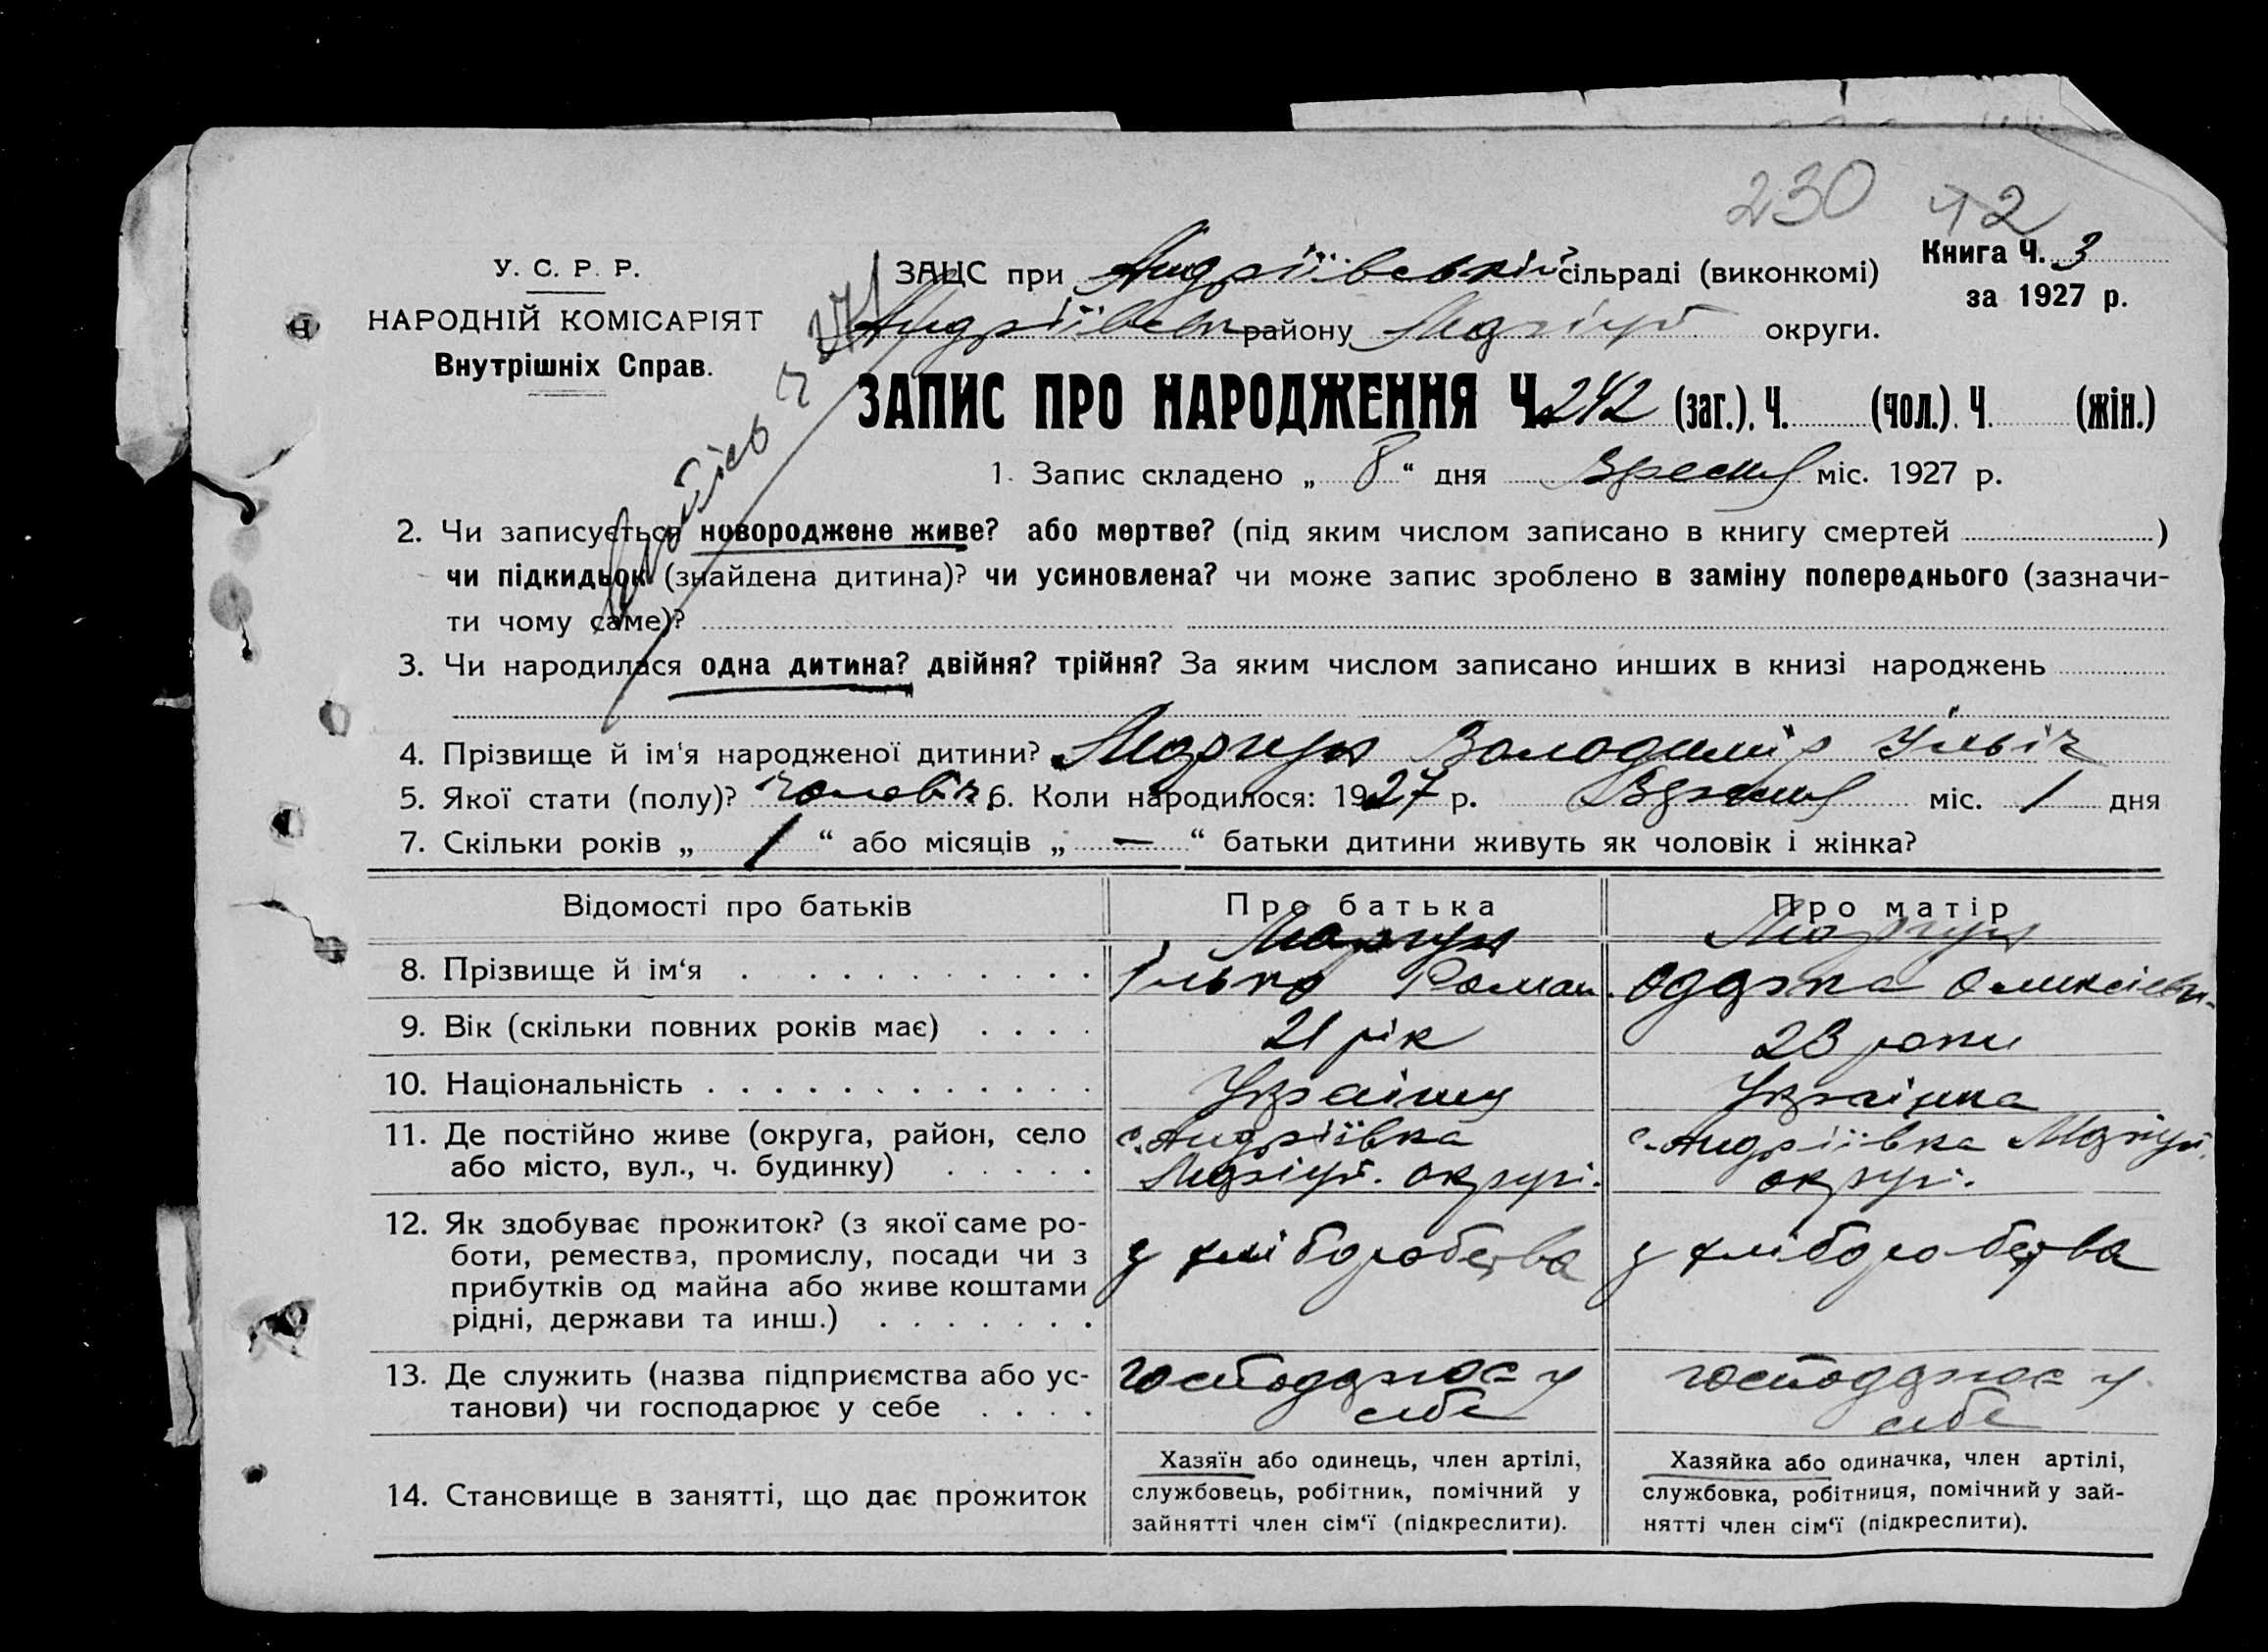 230 42
У. С. Р. Р.
НАРОДНІЙ КОМІСАРІЯТ
Внутрішніх Справ.
ЗАЦС при Андріївській сільраді (виконкомі)
Книга Ч. 3
за 1927 р.
Андріївськ району Маріуп округи.
ЗАПИС ПРО НАРОДЖЕННЯ Ч. 242 (заг.). Ч. (чол.). Ч. (жін.)
1. Запис складено „ 8 “ дня Вресня міс. 1927 р.
2. Чи записується новороджене живе? або мертве? (під яким числом записано в книгу смертей )
чи підкидьок (знайдена дитина)? чи усиновлена? чи може запис зроблено в заміну попереднього (зазначи-
ти чому саме)?
3. Чи народилася одна дитина? двійня? трійня? За яким числом записано инших в книзі народжень
4. Прізвище й ім'я народженої дитини? Володимир Ільіч
5. Якої стати (полу)? Чоловіч 6. Коли народилося: 1927 р. Вересня міс. 1 дня
7. Скільки років „ 1 “ або місяців „ — “ батьки дитини живуть як чоловік і жінка?
Відомості про батьків Про батька Про матір
8. Прізвище й ім‘я Ілько Роман. Одарка Олексіевн.
9. Вік (скільки повних років має) 21 рік 23 роки
10. Національність Українец Українка
11. Де постійно живе (округа, район, село с. Андріївка с. Андріївка Маріуп.
або місто, вул., ч. будинку) Маріуп. округі. округі.
12. Як здобуває прожиток? (з якої саме ро-
боти, ремества, промислу, посади чи з з хліборобства з хліборобства
прибутків од майна або живе коштами
рідні, держави та инш.)
13. Де служить (назва підприємства або ус- господарює у господарює у
танови) чи господарює у себе себе себе
14. Становище в занятті, що дає прожиток
Хазяїн або одинець, член артілі,
службовець, робітник, помічний у
зайнятті член сім‘ї (підкреслити).
Хазяйка або одиначка, член артілі,
службовка, робітниця, помічний у зай-
нятті член сім‘ї (підкреслити).